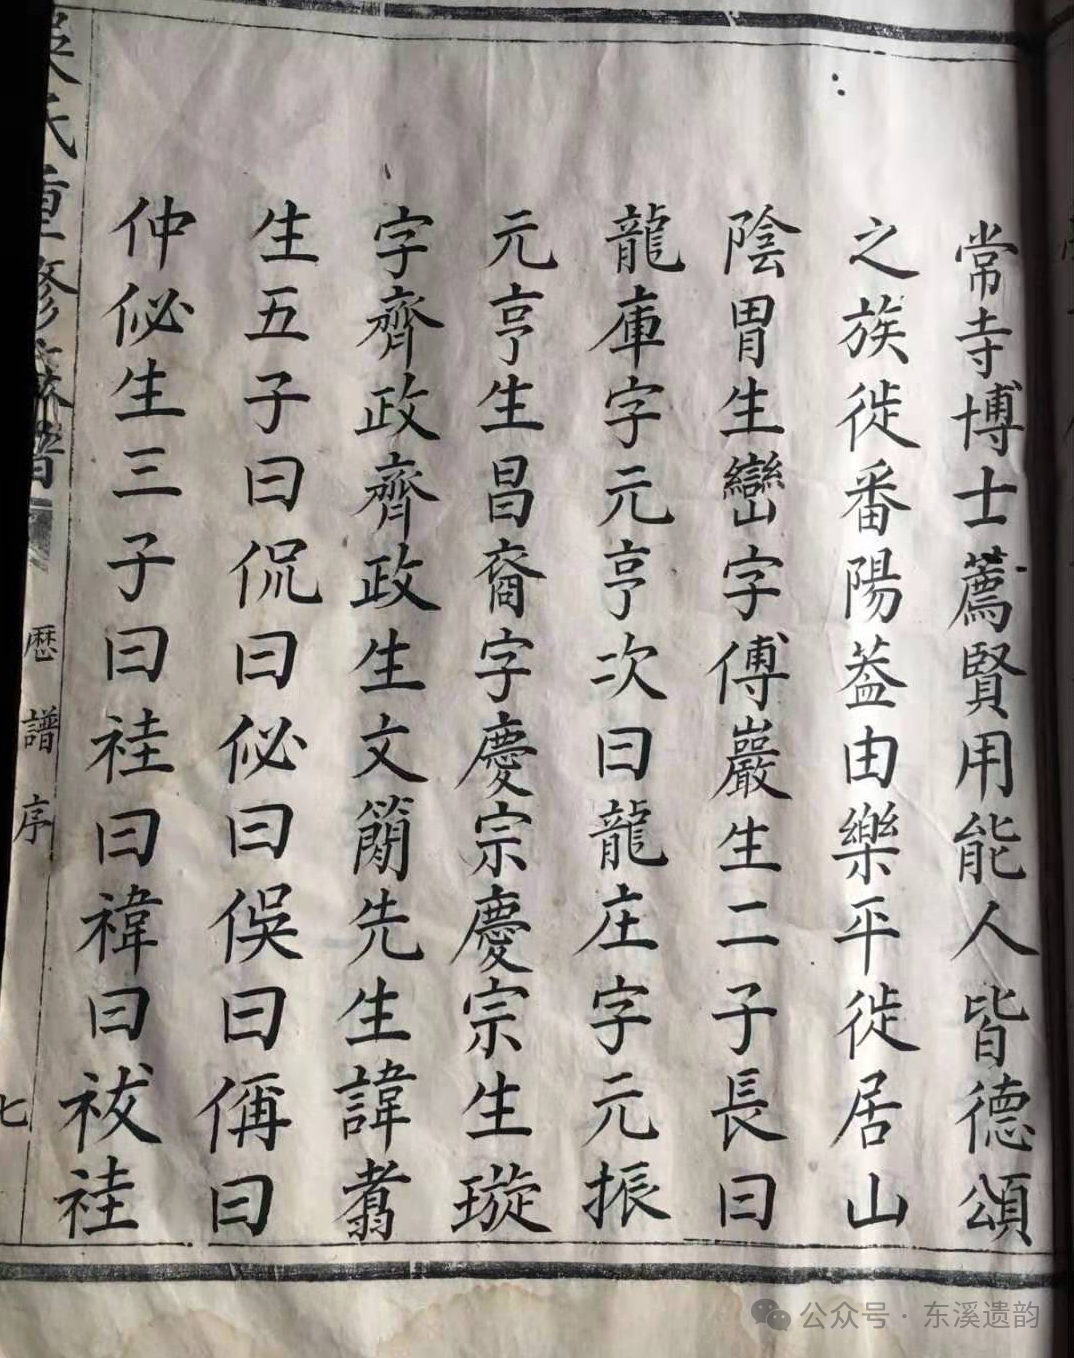 常寺博士薦賢用能人皆德頌
之族徙番陽葢由樂平徙居山
陰胄生巒字傅巖生二子長曰
龍庫字元亨次曰龍庄字元振
元亨生昌裔字慶宗慶宗生璇
字齊政齊政生文簡先生諱翥
生五子曰侃曰佖曰俁曰偁曰
仲佖生三子曰祩曰禕曰祓祩
吳氏重修宗譜
歷譜序
七
公众号·东溪遗韵